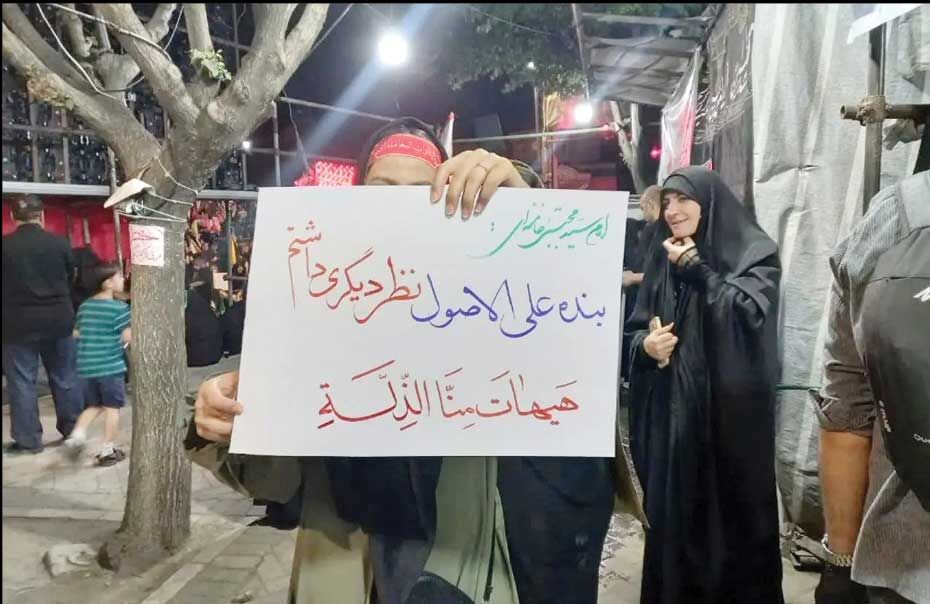 امام سید مجتبی خامنه‌ای :
بنده علی الاصول نظر دیگری داشتم
هَیهٰات مِنَّا الذِّلَّةِ